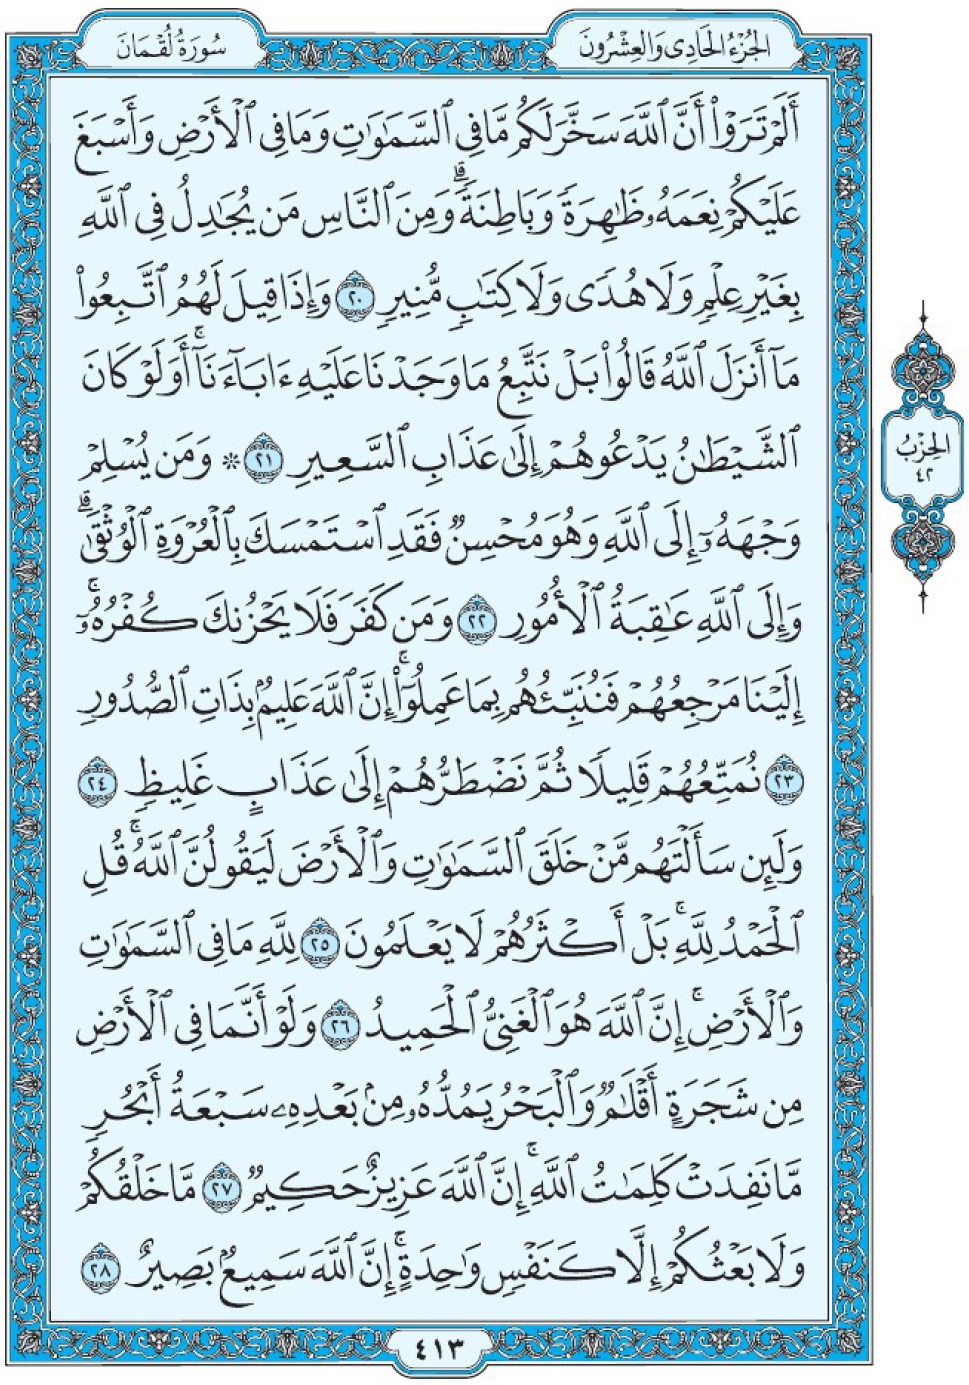 الجزء الحادي والعشرون
سورة لقمان
أَلَمۡ تَرَوۡاْ أَنَّ ٱللَّهَ سَخَّرَ لَكُم مَّا فِي ٱلسَّمَٰوَٰتِ وَمَا فِي ٱلۡأَرۡضِ وَأَسۡبَغَ
عَلَيۡكُمۡ نِعَمَهُۥ ظَٰهِرَةٗ وَبَاطِنَةٗۗ وَمِنَ ٱلنَّاسِ مَن يُجَٰدِلُ فِي ٱللَّهِ
بِغَيۡرِ عِلۡمٖ وَلَا هُدٗى وَلَا كِتَٰبٖ مُّنِيرٖ ٢٠ وَإِذَا قِيلَ لَهُمُ ٱتَّبِعُواْ
مَآ أَنزَلَ ٱللَّهُ قَالُواْ بَلۡ نَتَّبِعُ مَا وَجَدۡنَا عَلَيۡهِ ءَابَآءَنَآۚ أَوَلَوۡ كَانَ
ٱلشَّيۡطَٰنُ يَدۡعُوهُمۡ إِلَىٰ عَذَابِ ٱلسَّعِيرِ ٢١ * وَمَن يُسۡلِمۡ
وَجۡهَهُۥٓ إِلَى ٱللَّهِ وَهُوَ مُحۡسِنٞ فَقَدِ ٱسۡتَمۡسَكَ بِٱلۡعُرۡوَةِ ٱلۡوُثۡقَىٰۗ
وَإِلَى ٱللَّهِ عَٰقِبَةُ ٱلۡأُمُورِ ٢٢ وَمَن كَفَرَ فَلَا يَحۡزُنكَ كُفۡرُهُۥٓۚ
إِلَيۡنَا مَرۡجِعُهُمۡ فَنُنَبِّئُهُم بِمَا عَمِلُوٓاْۚ إِنَّ ٱللَّهَ عَلِيمُۢ بِذَاتِ ٱلصُّدُورِ
٢٣ نُمَتِّعُهُمۡ قَلِيلٗا ثُمَّ نَضۡطَرُّهُمۡ إِلَىٰ عَذَابٍ غَلِيظٖ ٢٤
وَلَئِن سَأَلۡتَهُم مَّنۡ خَلَقَ ٱلسَّمَٰوَٰتِ وَٱلۡأَرۡضَ لَيَقُولُنَّ ٱللَّهُۚ قُلِ
ٱلۡحَمۡدُ لِلَّهِۚ بَلۡ أَكۡثَرُهُمۡ لَا يَعۡلَمُونَ ٢٥ لِلَّهِ مَا فِي ٱلسَّمَٰوَٰتِ
وَٱلۡأَرۡضِۚ إِنَّ ٱللَّهَ هُوَ ٱلۡغَنِيُّ ٱلۡحَمِيدُ ٢٦ وَلَوۡ أَنَّمَا فِي ٱلۡأَرۡضِ
مِن شَجَرَةٍ أَقۡلَٰمٞ وَٱلۡبَحۡرُ يَمُدُّهُۥ مِنۢ بَعۡدِهِۦ سَبۡعَةُ أَبۡحُرٖ
مَّا نَفِدَتۡ كَلِمَٰتُ ٱللَّهِۚ إِنَّ ٱللَّهَ عَزِيزٌ حَكِيمٞ ٢٧ مَّا خَلۡقُكُمۡ
وَلَا بَعۡثُكُمۡ إِلَّا كَنَفۡسٖ وَٰحِدَةٍۚ إِنَّ ٱللَّهَ سَمِيعُۢ بَصِيرٌ ٢٨
الحزب
٤٢
٤١٣